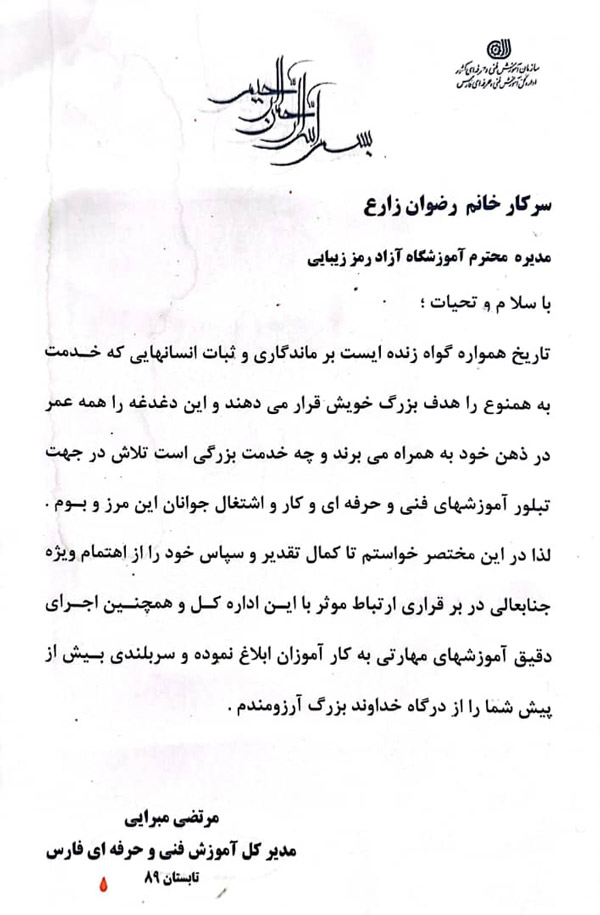 سازمان آموزش فنی و حرفه ای کشور
اداره کل آموزش فنی و حرفه ای فارس
بسم الله الرحمن الرحیم
سرکار خانم رضوان زارع
مدیره محترم آموزشگاه آزاد رمز زیبایی
با سلام و تحیات ؛
تاریخ همواره گواه زنده ایست بر ماندگاری و ثبات انسانهایی که خدمت
به همنوع را هدف بزرگ خویش قرار می دهند و این دغدغه را همه عمر
در ذهن خود به همراه می برند و چه خدمت بزرگی است تلاش در جهت
تبلور آموزشهای فنی و حرفه ای و کار و اشتغال جوانان این مرز و بوم .
لذا در این مختصر خواستم تا کمال تقدیر و سپاس خود را از اهتمام ویژه
جنابعالی در بر قراری ارتباط موثر با این اداره کل و همچنین اجرای
دقیق آموزشهای مهارتی به کار آموزان ابلاغ نموده و سربلندی بیش از
پیش شما را از درگاه خداوند بزرگ آرزومندم .
مرتضی میرایی
مدیر کل آموزش فنی و حرفه ای فارس
تابستان ۸۹